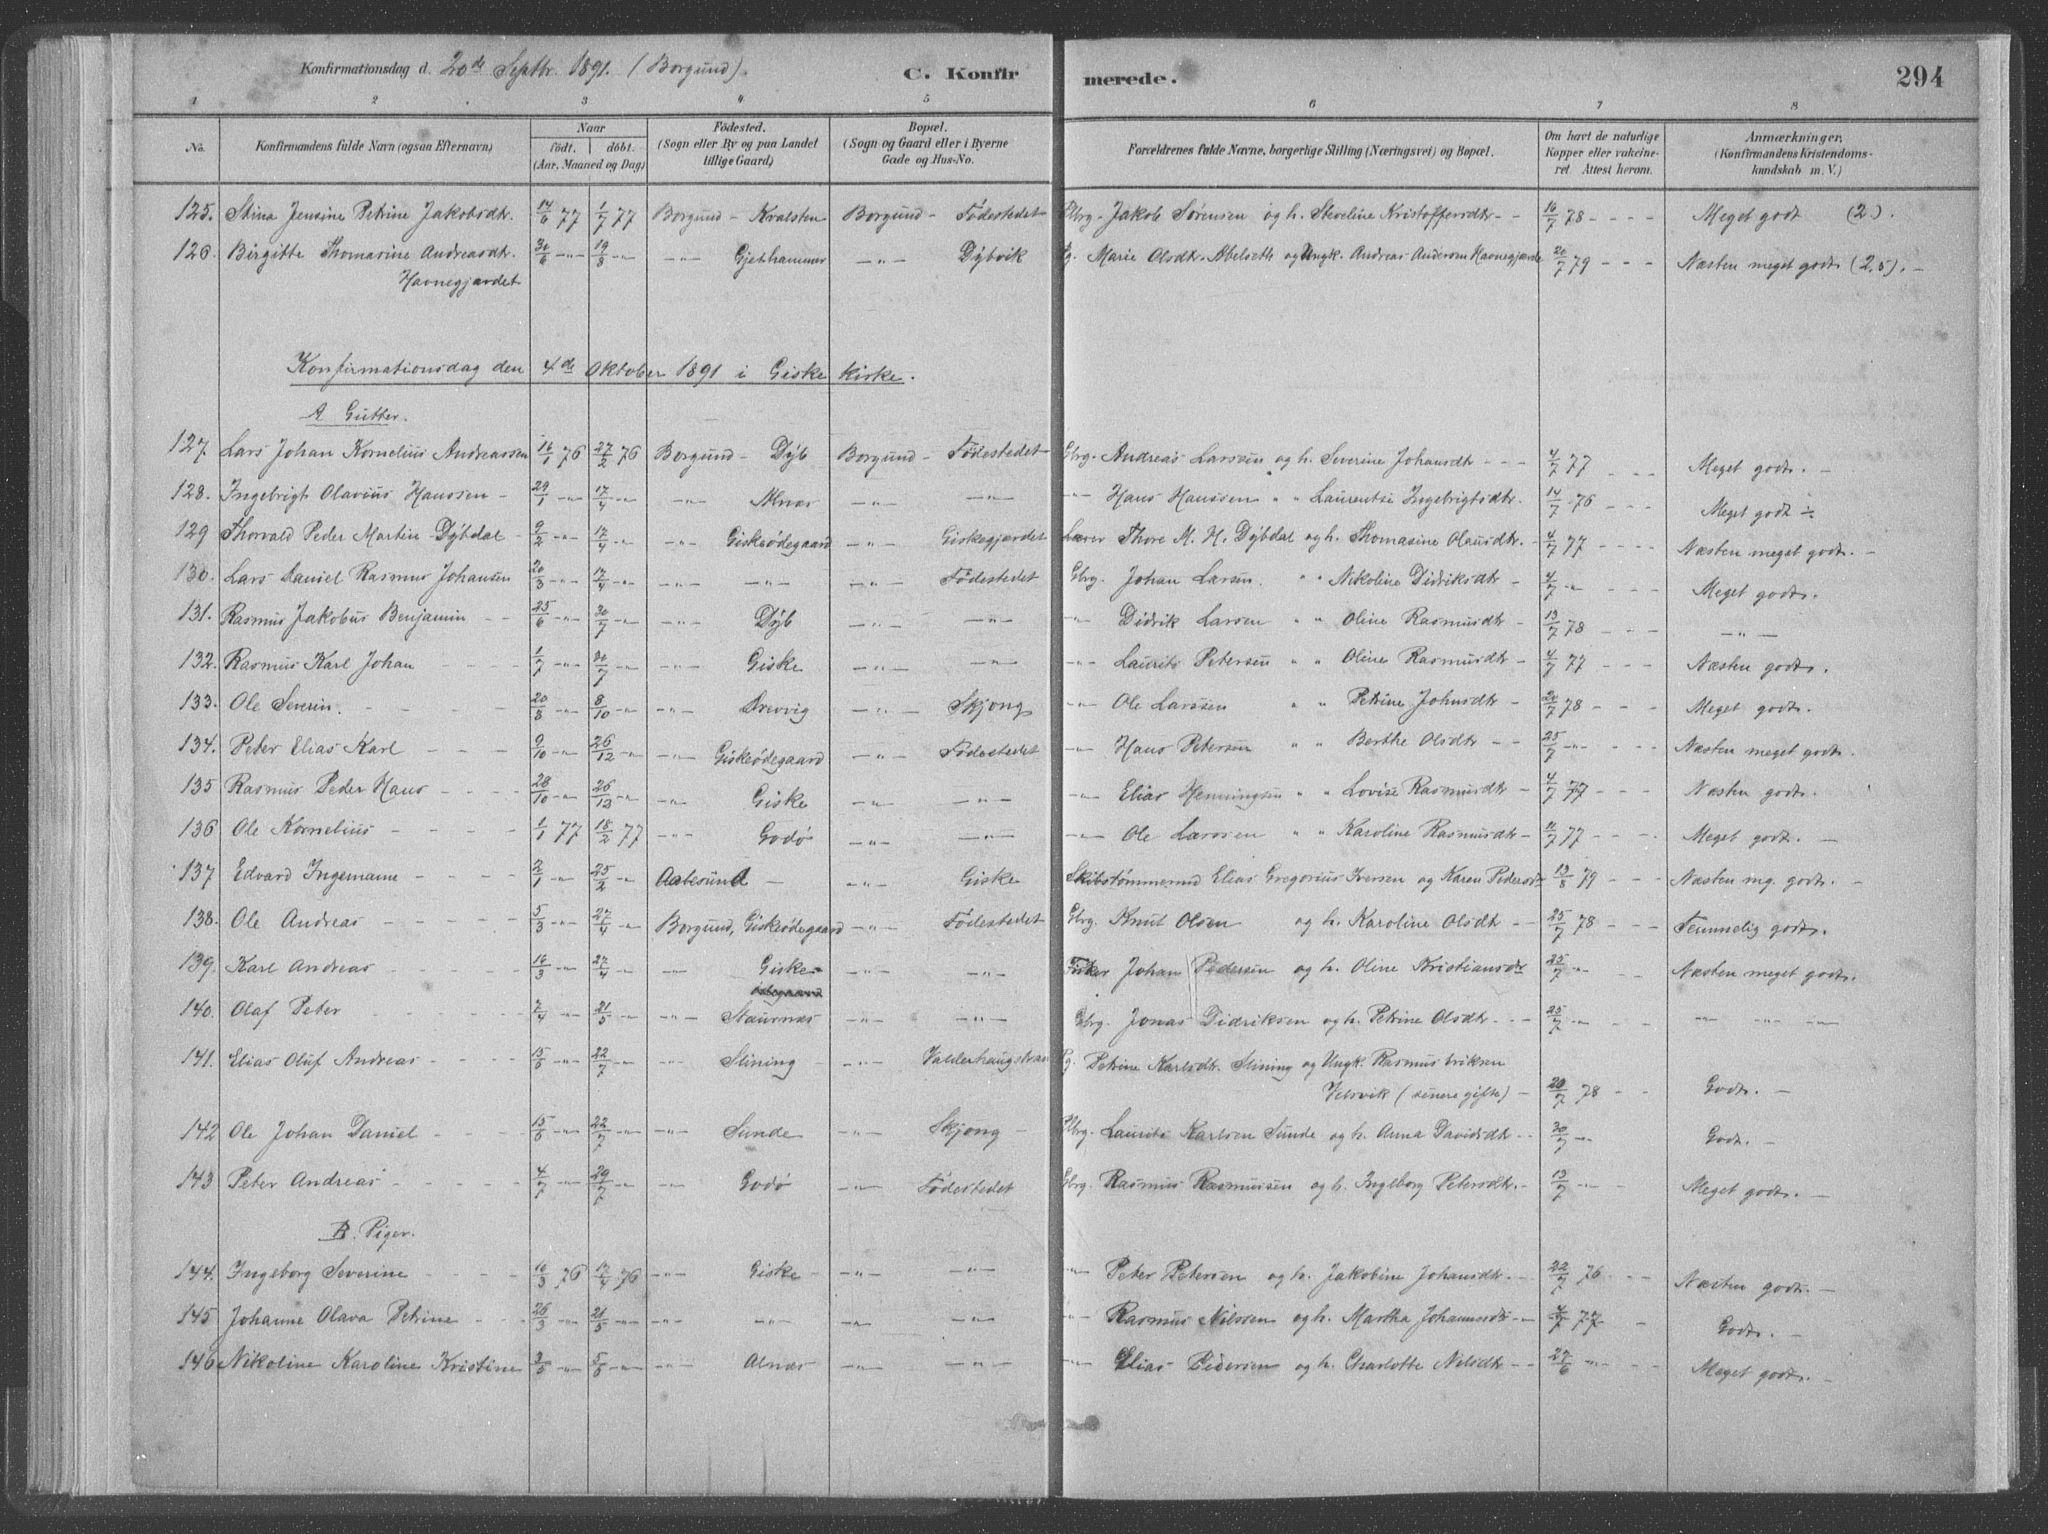 Konfirmationsdag d. 20de Septbr. 1891. (Borgund).
C. Konfirmerede.
294
1 2 3 4 5 6 7 8
No. Konfirmandens fulde Navn (ogsaa Efternavn) Naar født. døbt. (Aar, Maaned og Dag) Fødested. (Sogn eller By og paa Landet tillige Gaard) Bopæl. (Sogn og Gaard eller i Byerne Gade og Hus-No. Forældrenes fulde Navne, borgerlige Stilling (Næringsvei) og Bopæl. Om havt de naturlige Kopper eller vakcineret Attest herom. Anmærkninger, (Konfirmandens Kristendomskundskab m. V.)
125. Stina Jensine Petrine Jakobsdtr. 14/6 77 1/7 77 Borgund - Kvalsten Borgund - Fødestedet Gbrg. Jakob Sørensen og h. Steveline Kristoffersdtr - - 16/7 78 - - - Meget godt (2).
126. Birgitte Thomasine Andreasdtr. 30/6 -"- 19/8 -"- -"- Gjethammer -"- Dybvik Pg. Marie Olsdtr. Abelseth og Ungk. Andreas Andersen Havnegjærde 20/7 79 - - - Næsten meget godt (2,5). -
Havnegjærdet
Konfirmationsdag den 4de Oktober 1891 i Giske Kirke.
A Gutter.
127. Lars Johan Kornelius Andreassen 16/1 76 27/2 76 Borgund - Dyb Borgund - Fødestedet Gbrg. Andreas Larssen og h. Severine Johansdtr - - - 4/7 77 - - - Meget godt. -
128. Ingebrigt Olavius Hanssen - 29/1 -"- 17/4 -"- -"- Alnæs -"- -"- -"- Hans Hanssen " " Laurentse Ingebrigtsdtr. 14/7 76 - - - Meget godt
129 Thorvald Peder Martin Dybdal - 9/2 -"- 17/4 -"- -"- Giskeødegaard -"- Giskegjærdet Lærer Thore M. H. Dybdal og h. Thomasine Olausdtr. - 4/7 77 - - - Næsten meget godt. -
130. Lars Daniel Rasmus Johansen 20/3 -"- 17/4 -"- -"- -"- -"- Fødestedet Gbrg. Johan Larsen. " " Nikoline Didriksdtr - 4/7 -"- Meget godt.
131. Rasmus Jakobus Benjamin - - 25/6 -"- 30/7 -"- -"- Dyb -"- -"- -"- Didrik Larsen " " Oline Rasmusdtr - 13/7 78 - - - -"-
132. Rasmus Karl Johan - - - - 1/7 -"- 30/7 -"- -"- Giske -"- -"- -"- Laurits Petersen " " Oline Rasmusdtr - 4/7 77 - - - Næsten godt.
133. Ole Severin. - - - - 20/8 -"- 8/10 -"- -"- Drevvig -"- Skjong -"- Ole Larssen " " Petrine Johnsdtr - 20/7 78 - - - Meget godt.
134. Peter Elias Karl - - - 9/10 -"- 26/12 -"- -"- Giskeødegaard -"- Fødestedet -"- Hans Petersen " " Berthe Olsdtr - - 25/7 -"- - - Næsten meget godt.
135 Rasmus Peder Hans - - 28/10 -"- 26/12 -"- -"- Giske -"- -"- -"- Elias Henningsen " " Lovise Rasmusdtr - 4/7 77 - - - Næsten godt.
136 Ole Kornelius - - - - 1/1 77 18/2 77 -"- Godø -"- -"- -"- Ole Larssen " " Karoline Rasmusdtr - 11/7 77 - - - Meget godt. -
137 Edvard Ingemann - - - 2/1 -"- 25/2 -"- Aalesund - -"- Giske Skibstømmermd Elias Gregorius Iversen og Karen Pedersdtr 13/8 79 Næsten mg. godt. -
138. Ole Andreas - - - - 5/3 -"- 27/4 -"- Borgund, Giskeødegaard -"- Fødestedet Gbrg. Knut Olsen og h. Karoline Olsdtr - 25/7 78 - - - Temmelig godt.
139. Karl Andreas - - - - 16/3 -"- 27/4 -"- -"- Giske- -"- -"- Fisker Johan Pedersen og h. Oline Kristiansdtr 25/7 -"- - - Næsten meget godt.
140. Olaf Peter - - - - 7/4 -"- 21/5 -"- -"- Staurnæs -"- -"- Gbrg. Jonas Didriksen og h. Petrine Olsdtr. - - 25/7 -"- - - -"-
141. Elias Oluf Andreas - - - 15/5 -"- 22/7 -"- -"- Slining - -"- Valderhaugstran Pg. Petrine Karlsdtr. Slining og Ungk. Rasmus Eriksen
(senere gifte) - 20/7 78 - - Godt. -
142 Ole Johan Daniel - - - 15/6 -"- 22/7 -"- -"- Sunde -"- Skjong - Gbrg. Laurits Karlsen Sunde og h. Anna Davidsdtr - - 30/7 -"- Godt. -
143 Peter Andreas - - - - 4/7 -"- 29/7 -"- -"- Godø -"- Fødestedet Gbrg. Rasmus Rasmussen og h. Ingeborg Petersdtr. - 13/7 -"- - Meget godt. -
B. Piger.
144. Ingeborg Severine - - - 16/3 76 17/4 76 -"- Giske - -"- -"- -"- Peter Petersen og h. Jakobine Johansdtr. - - 22/7 76 - - Næsten godt. -
145 Johanne Olava Petrine - - 26/3 -"- 21/5 -"- -"- -"- -"- -"- -"- Rasmus Nilssen og h. Martha Johannesdtr - 4/7 77 - Godt. -
146 Nikoline Karoline Kristine 3/5 -"- 5/6 -"- -"- Alnæs -"- -"- -"- Elias Pedersen og h. Charlotte Nilsdtr - - 27/6 -"- - Meget godt. -